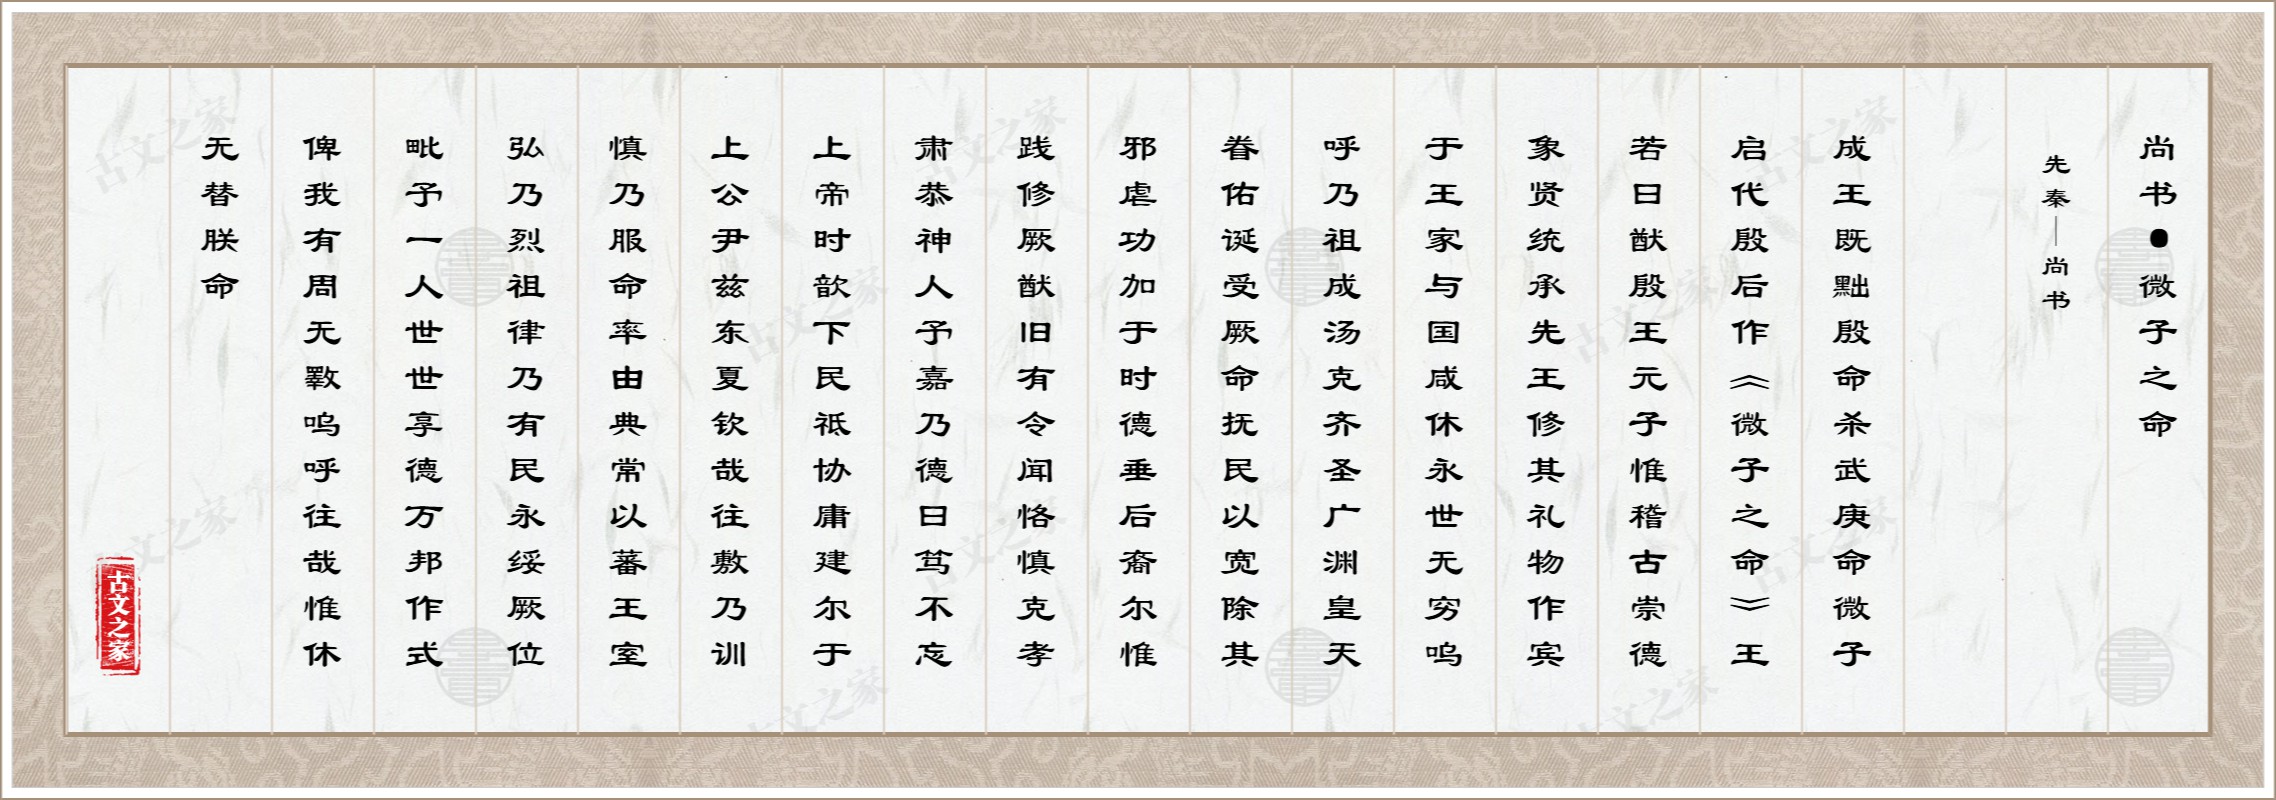 尚书●微子之命
先秦—尚书
成王既黜殷命杀武庚命微子
启代殷后作《微子之命》王
若曰猷殷王元子惟稽古崇德
象贤统承先王修其礼物作宾
于王家与国咸休永世无穷呜
呼乃祖成汤克齐圣广渊皇天
眷佑诞受厥命抚民以宽除其
邪虐功加于时德垂后裔尔惟
践修厥猷旧有令闻恪慎克孝
肃恭神人予嘉乃德曰笃不忘
上帝时歆下民祗协庸建尔于
上公尹兹东夏钦哉往敷乃训
慎乃服命率由典常以蕃王室
弘乃烈祖律乃有民永绥厥位
毗予一人世世享德万邦作式
俾我有周无斁呜呼往哉惟休
无替朕命
古文之家